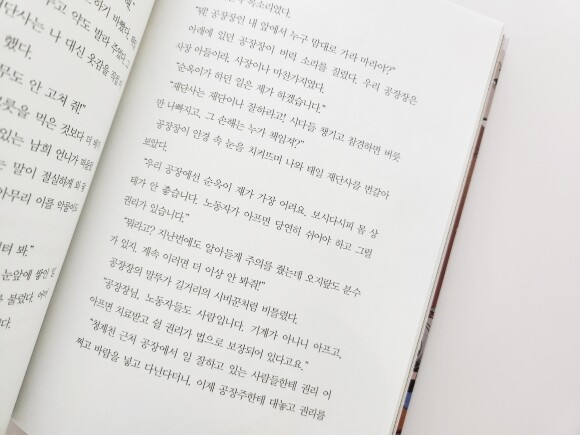 하기 바빴다.
두고, 약도 발라 주었다.
단사는 나 대신 옷감을
했다.
무도 안 고쳐 줘!"
릇을 먹은 것보다 더
있는 남희 언니가
는 말이 절실하게
아무리 이를 악물어도
터 봐."
눈앞에 쌓인
를 불렀다.
다.
목소리였다.
"뭐! 공장장인 내 앞에서 누구 맘대로 가라 마라야?"
아래에 있던 공장장이 버럭 소리를 질렀다. 우리 공장장은
사장 아들이라, 사장이나 마찬가지였다.
"순옥이가 하던 일은 제가 하겠습니다."
"재단사는 재단이나 잘하라고! 시다들 챙기고 참견하면 버릇
만 나빠지고, 그 손해는 누가 책임져?"
공장장이 안경 속 눈을 치켜뜨며 나와 태일 재단사를 번갈아
보았다.
"우리 공장에선 순옥이 쟤가 가장 어려요. 보시다시피 몸 상
태가 안 좋습니다. 노동자가 아프면 당연히 쉬어야 하고 그럴
권리가 있습니다."
"뭐라고? 지난번에도 알아듣게 주의를 줬는데 오지랖도 분수
가 있지. 계속 이러면 더 이상 안 봐줘!"
공장장의 말투가 길거리의 시비꾼처럼 비틀렸다.
"공장장님, 노동자들도 사람입니다. 기계가 아니니 아프고,
아프면 치료받고 쉴 권리가 법으로 보장되어 있다고요."
"청계천 근처 공장에서 일 잘하고 있는 사람들한테 권리 어
쩌고 바람을 넣고 다닌다더니, 이제 공장주한테 대놓고 권리를